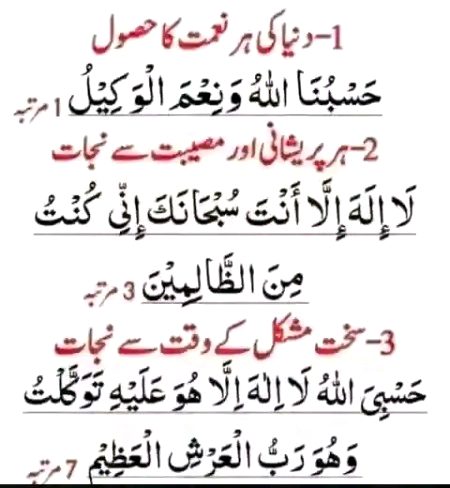 1-دنیا کی ہر نعمت کا حصول
حَسْبُنَا اللهُ وَنِعْمَ الْوَكِيْلُ 1 مرتبہ
2-ہر پریشانی اور مصیبت سے نجات
لَا إِلَهَ إِلَّا أَنْتَ سُبْحَانَكَ إِنِّي كُنْتُ
مِنَ الظَّالِمِيْنَ 3 مرتبہ
3-سخت مشکل کے وقت سے نجات
حَسْبِيَ اللهُ لَا اِلٰهَ اِلَّا هُوَ عَلَيْهِ تَوَكَّلْتُ
وَهُوَ رَبُّ الْعَرْشِ الْعَظِيْمِ 7 مرتبہ